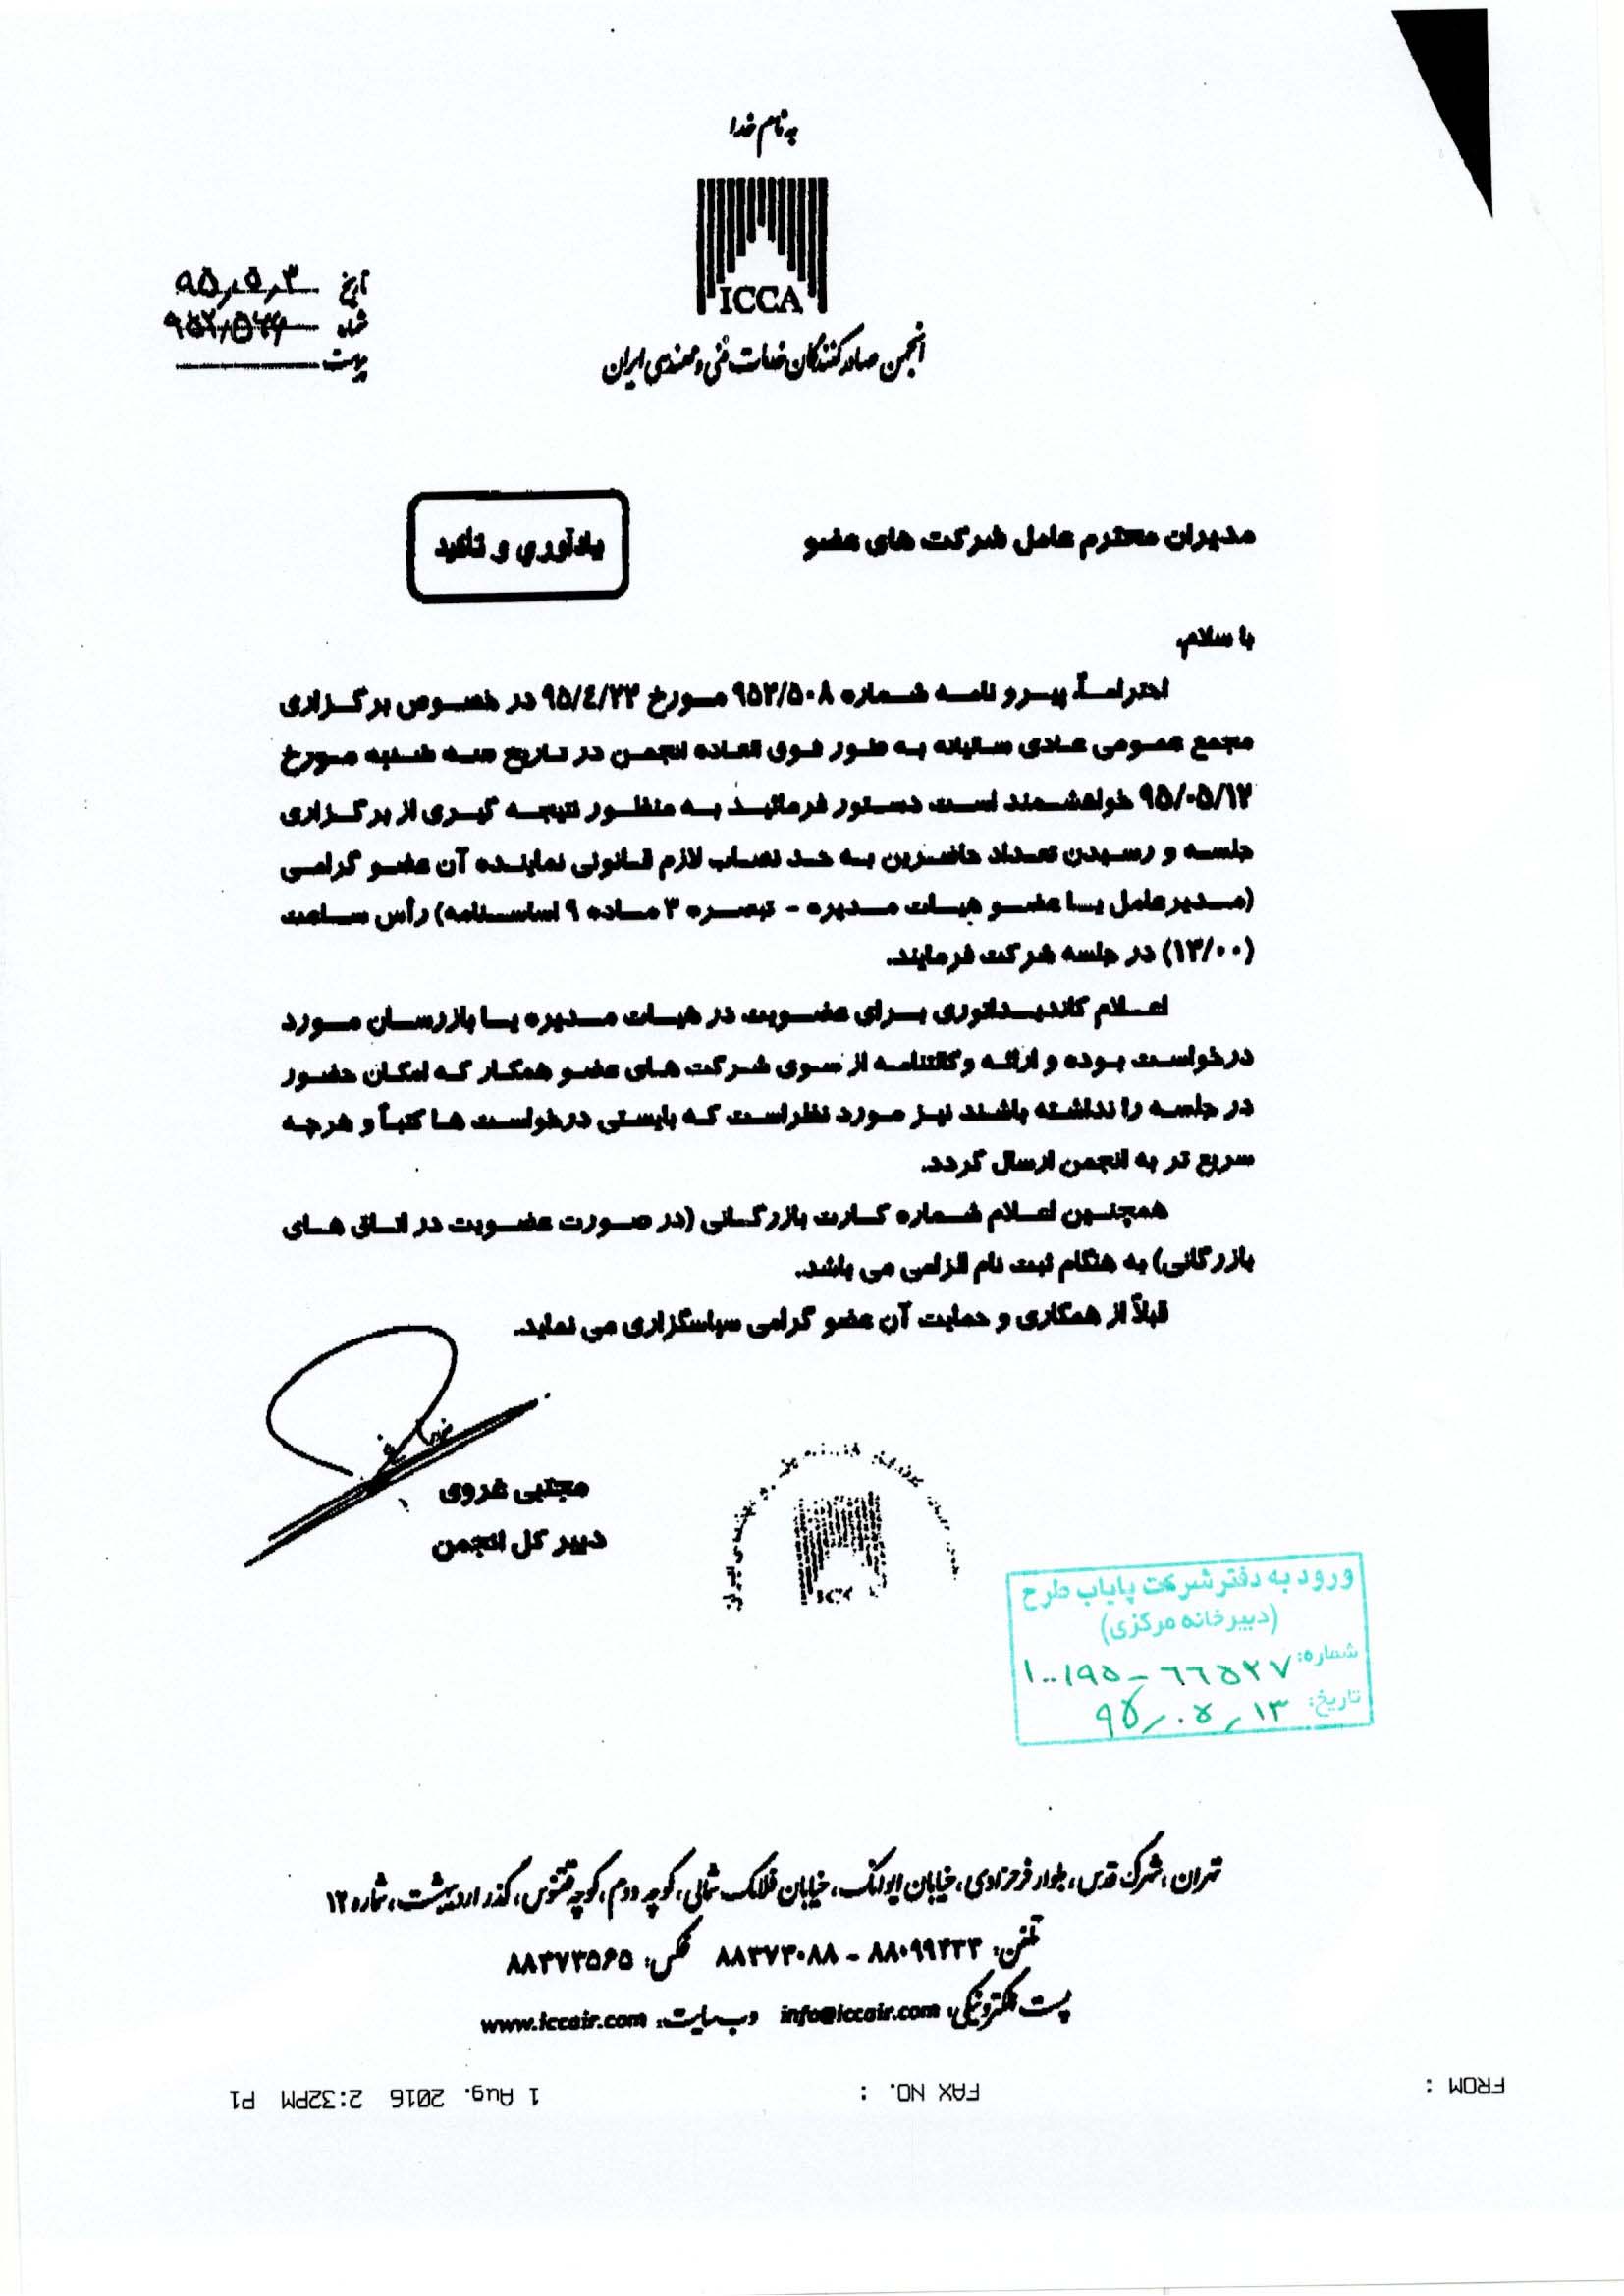 به نام خدا
ICCA
انجمن صادرکنندگان خدمات فنی و مهندسی ایران
تاریخ ۹۵/۵/۳
شماره
پیوست
مدیران محترم عامل شرکت های عضو
یادآوری و تأکید
با سلام،
احتراماً، پیرو نامه شماره ۹۵۲/۵۰۸ مورخ ۹۵/۴/۲۳ در خصوص برگزاری
مجمع عمومی عادی سالیانه به طور فوق العاده انجمن در تاریخ سه شنبه مورخ
۹۵/۰۵/۱۲ خواهشمند است دستور فرمائید به منظور نتیجه گیری از برگزاری
جلسه و رسیدن تعداد حاضرین به حد نصاب لازم قانونی نماینده آن عضو گرامی
(مدیرعامل یا عضو هیات مدیره - تبصره ۳ ماده ۹ اساسنامه) رأس ساعت
(۱۳/۰۰) در جلسه شرکت فرمایند.
اعلام کاندیداتوری برای عضویت در هیات مدیره یا بازرسان مورد
درخواست بوده و ارائه وکالتنامه از سوی شرکت های عضو همکار که امکان حضور
در جلسه را نداشته باشند نیز مورد نظراست که بایستی درخواست ها کتباً و هرچه
سریع تر به انجمن ارسال گردد.
همچنین اعلام شماره کارت بازرگانی (در صورت عضویت در اتاق های
بازرگانی) به هنگام ثبت نام الزامی می باشد.
قبلاً از همکاری و حمایت آن عضو گرامی سپاسگزاری می نماید.
مجتبی غروی
دبیر کل انجمن
ورود به دفتر شرکت پایاب طرح
(دبیرخانه مرکزی)
شماره: ۱۰۰/۹۵-۶۶۵۲۷
تاریخ: ۹۵/۰۵/۱۳
تهران، شهرک قدس، بلوار فرحزادی، خیابان ایوانک، خیابان فلامک شمالی، کوچه دوم، کوچه ققنوس، گذر اردیبهشت، شماره ۱۲
تلفن: ۸۸۰۹۹۲۳۳ - ۸۸۳۷۳۰۸۸ فکس: ۸۸۳۷۳۵۶۵
پست الکترونیکی: info@iccair.com وب سایت: www.iccair.com
FROM : FAX NO. : 1 Aug. 2016 2:32PM P1